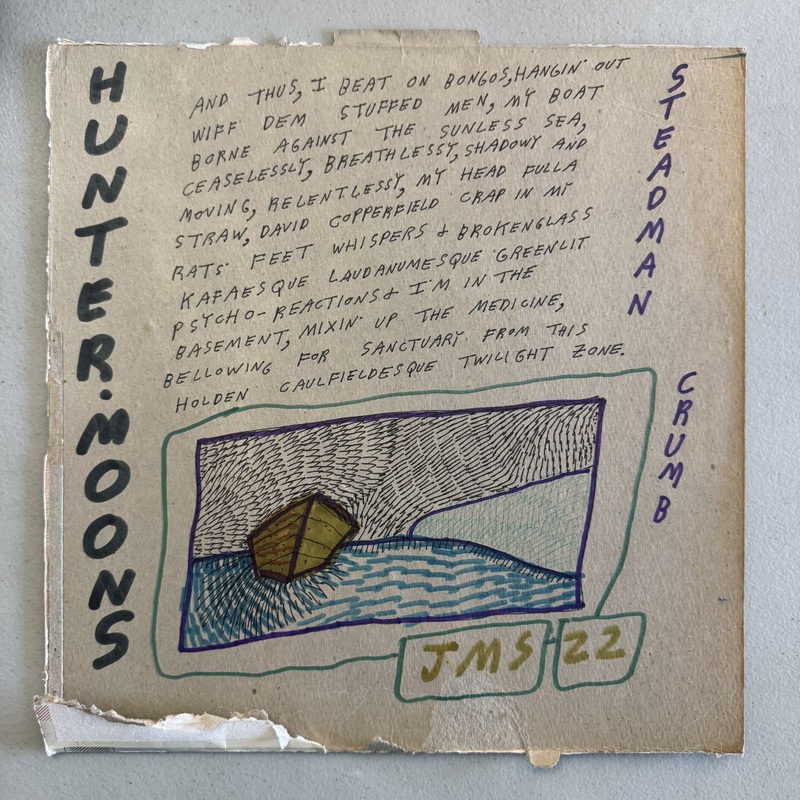 HUNTER.MOONS
AND THUS, I BEAT ON BONGOS, HANGIN' OUT
WIFF DEM STUFFED MEN, MY BOAT
BORNE AGAINST THE SUNLESS SEA,
CEASELESSLY, BREATHLESSY, SHADOWY AND
MOVING, RELENTLESSY, MY HEAD FULLA
STRAW, DAVID COPPERFIELD CRAP IN MY
RATS' FEET WHISPERS & BROKENGLASS
KAFAESQUE LAUDANUMESQUE GREENLIT
PSYCHO-REACTIONS & I'M IN THE
BASEMENT, MIXIN' UP THE MEDICINE,
BELLOWING FOR SANCTUARY FROM THIS
HOLDEN CAULFIELDESQUE TWILIGHT ZONE.
STEADMAN
CRUMB
JMS 22